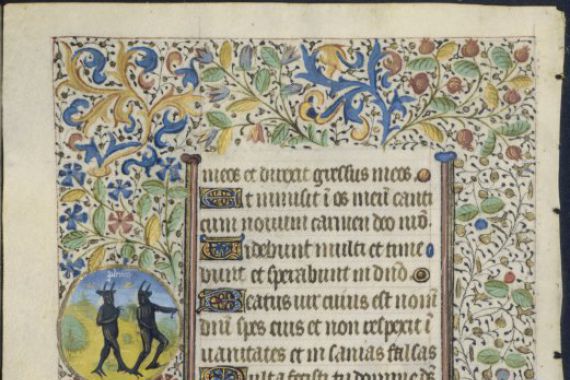 meos et direxit gressus meos
Et inmisit ī os meū canti
cum novum carmen deo nr̄o
Videbunt multi et time
bunt et sperabunt in dn̄o
Beatus vir cuius est nom̄
dn̄i spes eius et non respexit ī
vanitates et in sanias falsas
Multa fecisti tu domine de